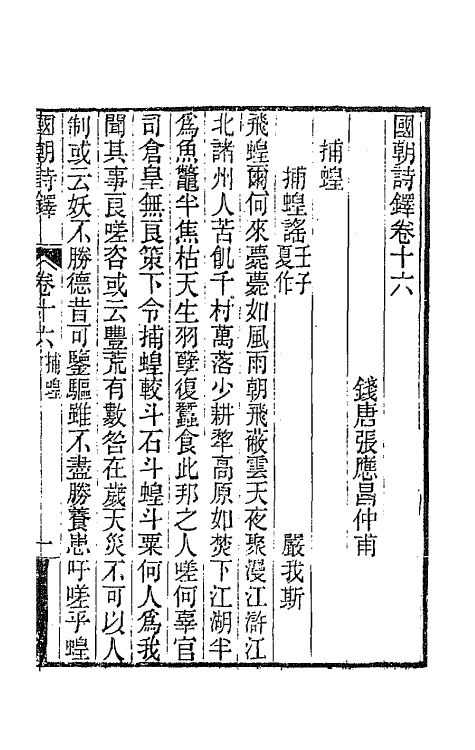 國朝詩鐸卷十六
錢唐張應昌仲甫
捕蝗
捕蝗謠壬子夏作 嚴我斯
飛蝗爾何來薨薨如風雨朝飛蔽雲天夜聚漫江滸江
北諸州人苦飢千村萬落少耕犂高原如焚下江湖半
爲魚鼈半焦枯天生羽孽復蠶食此邦之人嗟何辜官
司倉皇無良策下令捕蝗較斗石斗蝗斗粟何人爲我
聞其事良嗟咨或云豐荒有數咎在歲天災不可以人
制或云妖不勝德昔可鑒驅雖不盡勝養患吁嗟乎蝗
國朝詩鐸 卷十六 捕蝗 一